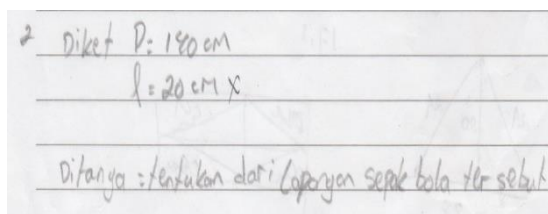 2 Diket P: 180 cm
l = 20 cm x
Ditanya : tentukan dari lapangan sepak bola ter sebut